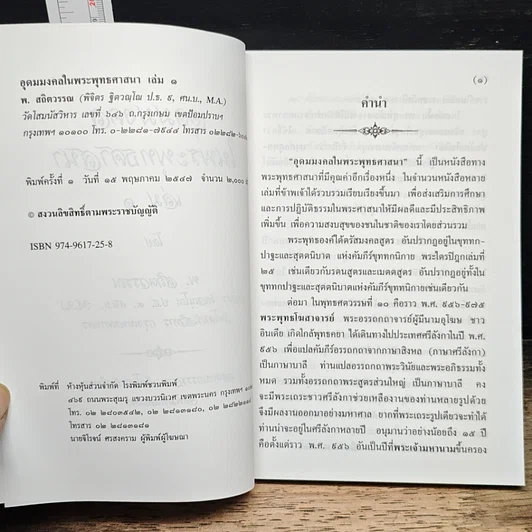 อุดมมงคลในพระพุทธศาสนา เล่ม ๑
พ. สถิตวรรณ (พิจิตร ฐิตวณฺโณ ป.ธ. ๙, ศน.บ., M.A.)
วัดโสมนัสวิหาร เลขที่ ๖๔๖ ถ.กรุงเกษม เขตป้อมปราบฯ
กรุงเทพฯ ๑๐๑๐๐ โทร. ๐-๒๒๘๑-๗๙๔๔ โทรสาร
พิมพ์ครั้งที่ ๑ วันที่ ๑๕ พฤษภาคม ๒๕๔๗ จำนวน ๒,๐๐๐
© สงวนลิขสิทธิ์ตามพระราชบัญญัติ
ISBN 974-9617-25-8
พิมพ์ที่ ห้างหุ้นส่วนจำกัด โรงพิมพ์ชวนพิมพ์
๔๖๙ ถนนพระสุเมรุ แขวงบวรนิเวศ เขตพระนคร กรุงเทพฯ
โทร. ๐๒ ๒๘๐๓๕๕๒, ๐๒ ๒๘๑๓๑๘๐,
โทรสาร ๐๒ ๒๘๑๓๑๘๑
นายชีโรจน์ ศรสงคราม ผู้พิมพ์ผู้โฆษณา
(๑)
คำนำ
"อุดมมงคลในพระพุทธศาสนา" นี้ เป็นหนังสือทาง
พระพุทธศาสนาที่มีคุณค่าอีกเรื่องหนึ่ง ในจำนวนหนังสือหลาย
เล่มที่ข้าพเจ้าได้รวบรวมเรียบเรียงขึ้นมา เพื่อส่งเสริมการศึกษา
และการปฏิบัติธรรมในพระศาสนาให้มีผลดีและมีประสิทธิภาพ
เพิ่มขึ้น เพื่อความสงบสุขของชนในชาติของเราโดยส่วนรวม
พระพุทธองค์ได้ตรัสมงคลสูตร อันปรากฏอยู่ในขุททก-
ปาฐะและสุตตนิบาต แห่งคัมภีร์ขุททกนิกาย พระไตรปิฎกเล่มที่
๒๕ เช่นเดียวกับรตนสูตรและเมตตสูตร อันปรากฏอยู่ทั้งใน
ขุททกปาฐะและสุตตนิบาตแห่งคัมภีร์ขุททกนิกายเช่นเดียวกัน
ต่อมา ในพุทธศตวรรษที่ ๑๐ คือราว พ.ศ. ๙๕๖-๙๗๕
พระพุทธโฆสาจารย์ พระอรรถกถาจารย์ผู้มีนามอุโฆษ ชาว
อินเดีย เกิดใกล้พุทธคยา ได้เดินทางไปประเทศศรีลังกาในปี พ.ศ.
๙๕๖ เพื่อแปลคัมภีร์อรรถกถาจากภาษาสิงหล (ภาษาศรีลังกา)
เป็นภาษาบาลี ท่านแปลอรรถกถาพระวินัยและพระอภิธรรมทั้ง
หมด รวมทั้งอรรถกถาพระสูตรส่วนใหญ่ เป็นภาษาบาลี คง
จะมีพระเถระชาวศรีลังกาช่วยเหลืองานของท่านหลายรูปด้วย
จึงมีผลงานออกมาอย่างมหาศาล ยากที่พระเถระรูปเดียวจะทำได้
ท่านน่าจะอยู่ในศรีลังกาหลายปี อนุมานว่าอย่างน้อยถึง ๑๕ ปี
คือตั้งแต่ราว พ.ศ. ๙๕๖ อันเป็นปีที่พระเจ้ามหานามขึ้นครอง